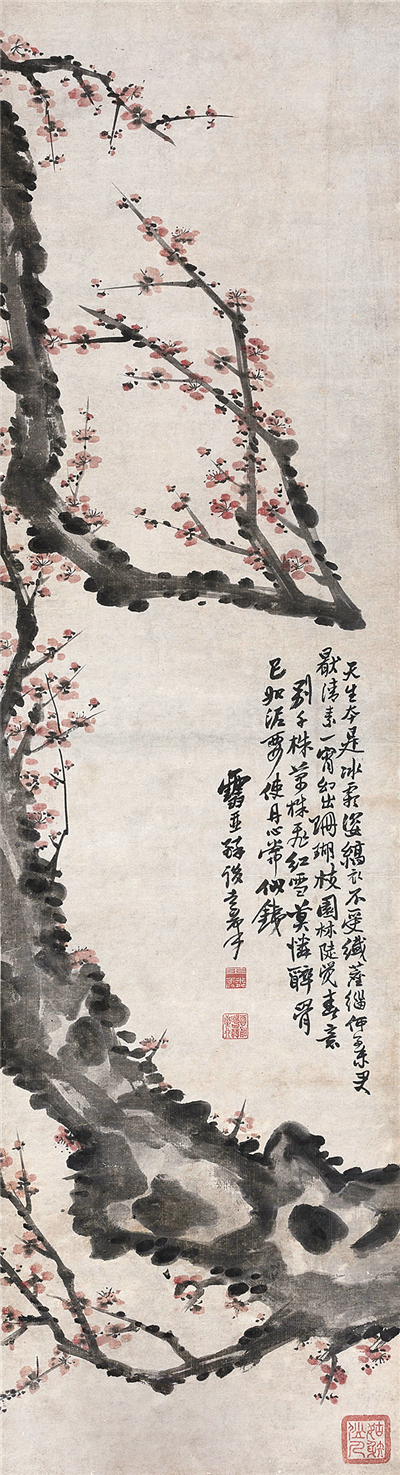 天生本是冰霜姿縞衣不受纖塵緇又
厭清素一宵幻出珊瑚枝園林陡覺春意
別千株萬株飛紅雪莫憐醉骨
已如泥要使丹心常似鐵